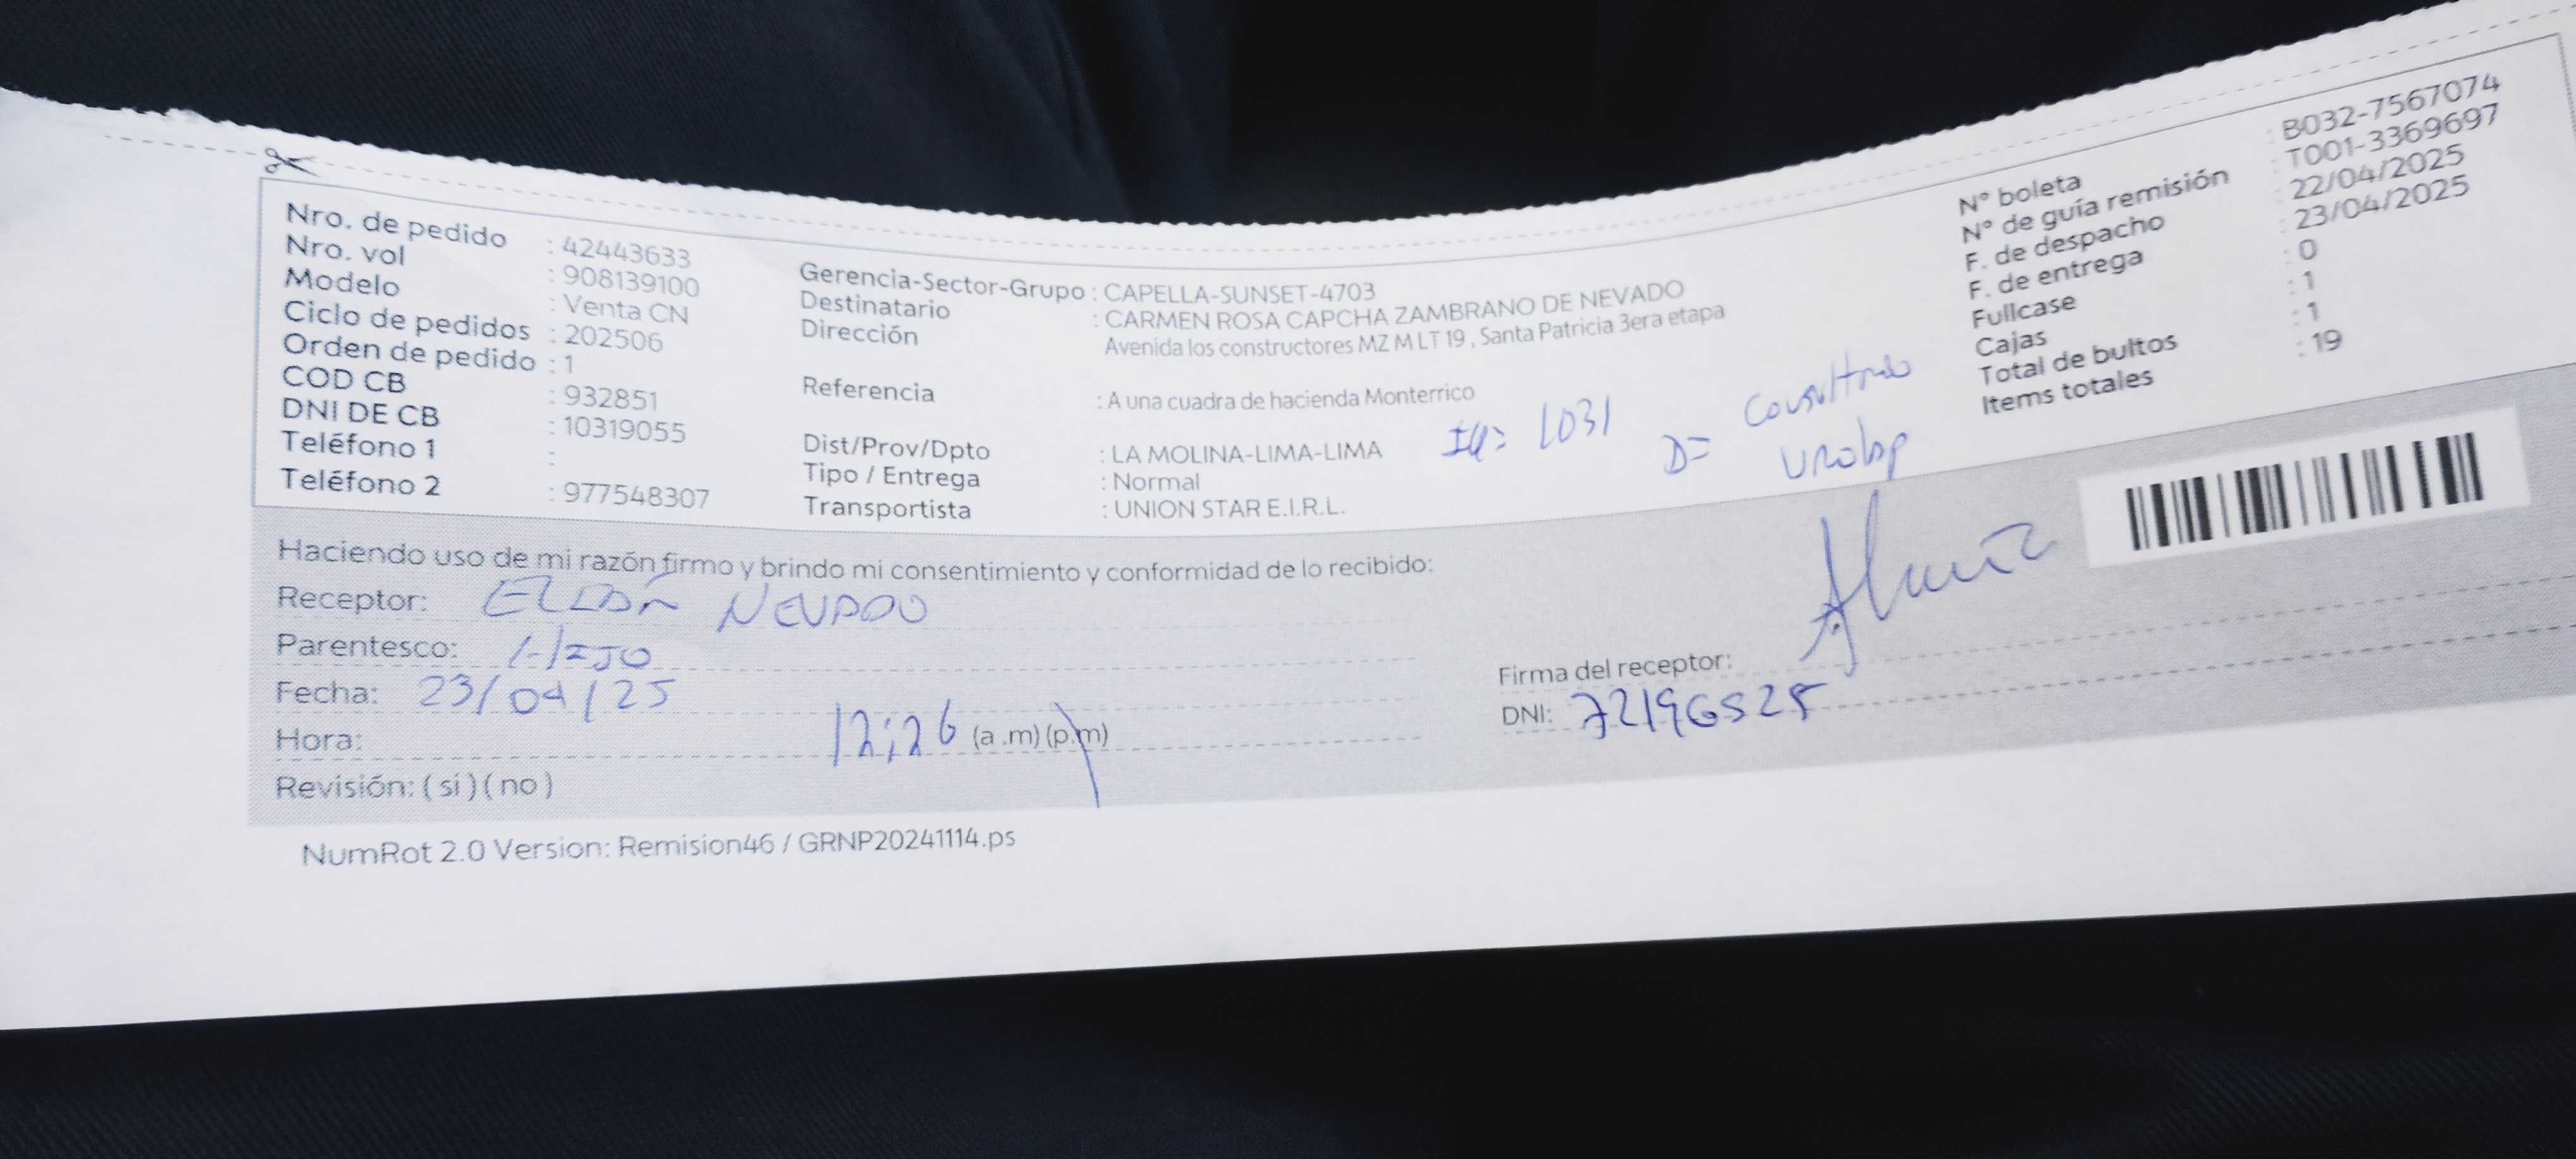 Nro. de pedido : 42443633
Nro. vol : 908139100
Modelo : Venta CN
Ciclo de pedidos : 202506
Orden de pedido : 1
COD CB : 932851
DNI DE CB : 10319055
Teléfono 1 :
Teléfono 2 : 977548307
Gerencia-Sector-Grupo : CAPELLA-SUNSET-4703
Destinatario : CARMEN ROSA CAPCHA ZAMBRANO DE NEVADO
Dirección Avenida los constructores MZ M LT 19 , Santa Patricia 3era etapa
Referencia : A una cuadra de hacienda Monterrico
Dist/Prov/Dpto : LA MOLINA-LIMA-LIMA
Tipo / Entrega : Normal
Transportista : UNION STAR E.I.R.L.
1031
D=
N° boleta : B032-7567074
N° de guía remisión : T001-3369697
F. de despacho : 22/04/2025
F. de entrega : 23/04/2025
Fullcase : 0
Cajas : 1
Total de bultos : 1
Items totales : 19
Haciendo uso de mi razón firmo y brindo mi consentimiento y conformidad de lo recibido:
Receptor: NEVADO
Parentesco: HIJO
Fecha: 23/04/25
Hora: 12:26 (a .m) (p.m)
Revisión: ( si ) ( no )
Firma del receptor:
DNI: 72196525
NumRot 2.0 Version: Remision46 / GRNP20241114.ps